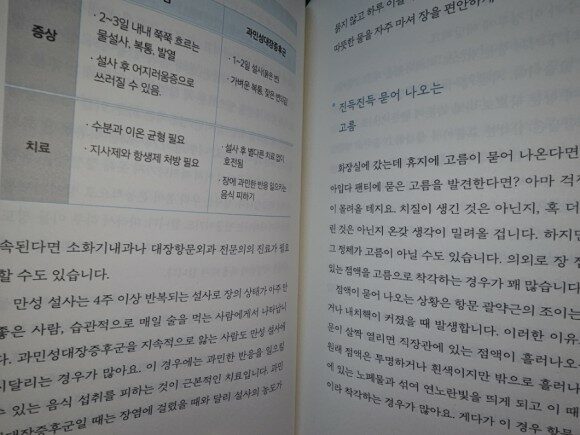 과민성대장증후군
증상
· 2~3일 내내 쭉쭉 흐르는
물설사, 복통, 발열
· 설사 후 어지러움증으로
쓰러질 수 있음.
· 1~2일 설사(묽은 변)
· 가벼운 복통, 잦은 변의감
치료
· 수분과 이온 균형 필요
· 지사제와 항생제 처방 필요
· 설사 후 별다른 치료 없이
호전됨
· 장에 과민한 반응 일으키는
음식 피하기
속된다면 소화기내과나 대장항문외과 전문의의 진료가 필요
할 수도 있습니다.
만성 설사는 4주 이상 반복되는 설사로 장의 상태가 아주 안
좋은 사람, 습관적으로 매일 술을 먹는 사람에게서 나타납니
다. 과민성대장증후군을 지속적으로 앓는 사람도 만성 설사에
시달리는 경우가 많아요. 이 경우에는 과민한 반응을 일으킬
수 있는 음식 섭취를 피하는 것이 근본적인 치료입니다. 과민
대장증후군일 때는 장염에 걸렸을 때와 달리 설사의 농도가
묽지 않고 하루 이틀
따뜻한 물을 자주 마셔 장을 편안하게
진득진득 묻어 나오는
고름
화장실에 갔는데 휴지에 고름이 묻어 나온다면
아입다 팬티에 묻은 고름을 발견한다면? 아마 걱
이 몰려올 테지요. 치질이 생긴 것은 아닌지, 혹 더
린 것은 아닌지 온갖 생각이 밀려올 겁니다. 하지만
그 정체가 고름이 아닐 수도 있습니다. 의외로 장 점
있는 점액을 고름으로 착각하는 경우가 꽤 많습니다.
점액이 묻어 나오는 상황은 항문 괄약근의 조이는
거나 내치핵이 커졌을 때 발생합니다. 이러한 이유
문이 살짝 열리면 직장관에 있는 점액이 흘러나오
원래 점액은 투명하거나 흰색이지만 밖으로 흘러나
에 있는 노폐물과 섞여 연노란빛을 띄게 되고 이 때
이라 착각하는 경우가 많아요. 게다가 이 경우 항문